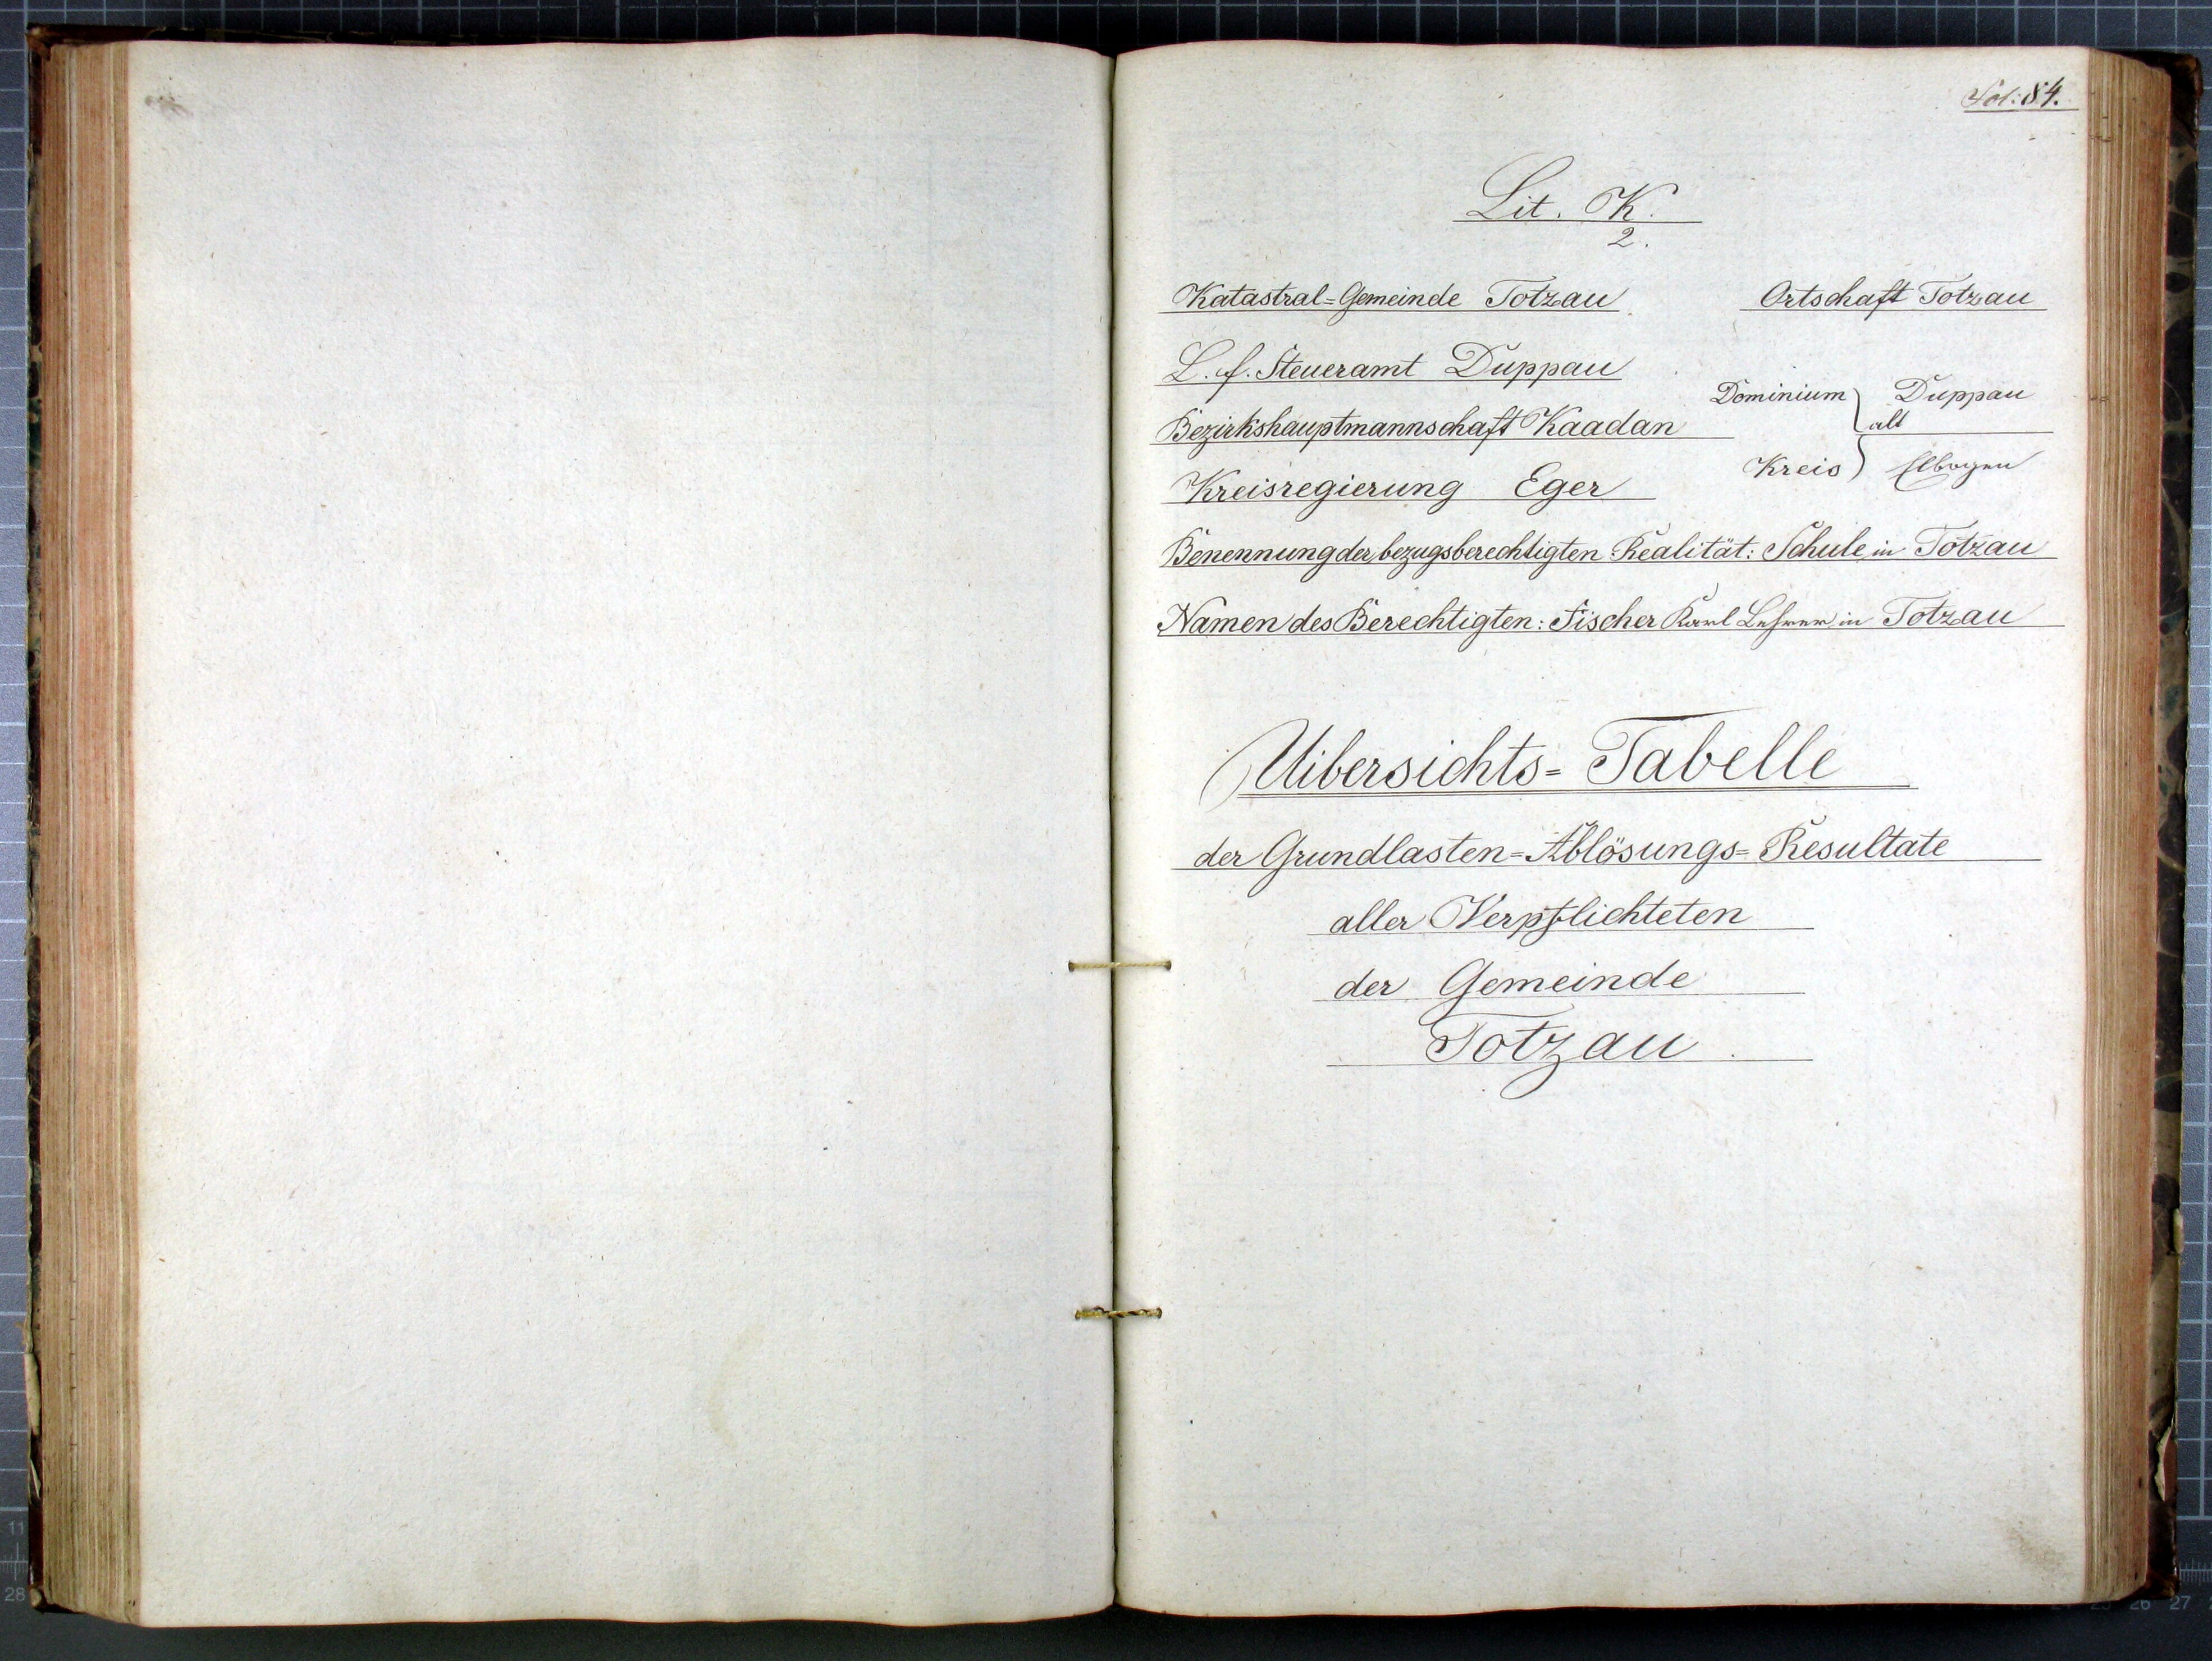 Fol: 84.
Lit. K.
2.
Katastral=Gemeinde Totzau
Ortschaft Totzau
L. f. Steueramt Duppau
Dominium } Duppau
alt
Bezirkshauptmannschaft Kaadan
Kreis } Elbogen
Kreisregierung Eger
Benennung der bezugsberechtigten Realität: Schule in Totzau
Namen des Berechtigten: Fischer Karl Lehrer in Totzau
Uibersichts=Tabelle
der Grundlasten=Ablösungs=Resultate
aller Verpflichteten
der Gemeinde
Totzau.
11
28
26 27